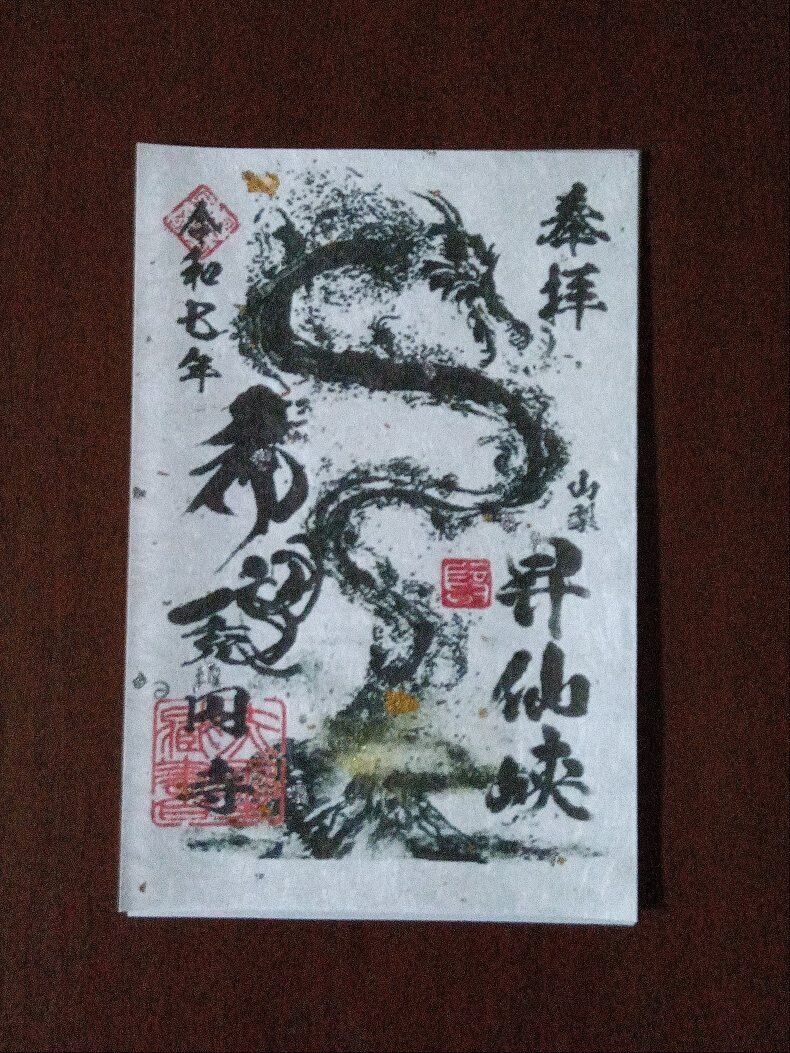 奉拝
山梨
昇仙峡
令和七年
希望
円寺